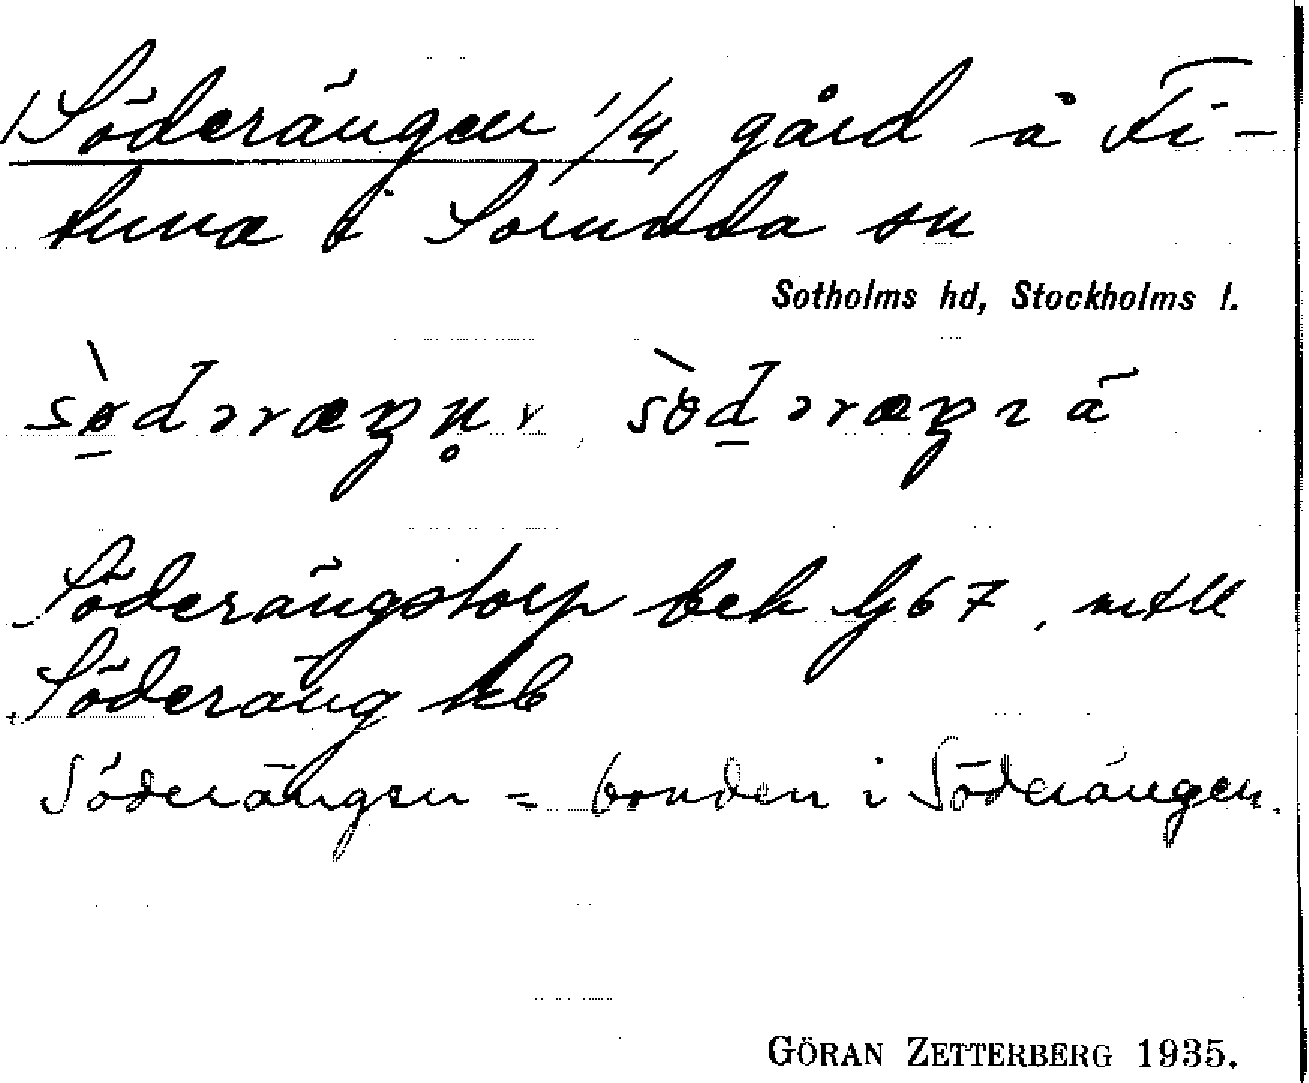 Söderängen 1/4, gård å Fi-
tuna i Sorunda sn
Sotholms hd, Stockholms l.
Söderängstorp bek Gb7, mtll
Söderäng kb
Söderängsn = bonden i Söderängen.
GÖRAN ZETTERBERG 1935.